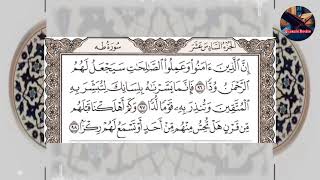 الجزء السادس عشر سورة طه
إِنَّ ٱلَّذِينَ ءَامَنُوا۟ وَعَمِلُوا۟ ٱلصَّٰلِحَٰتِ سَيَجْعَلُ لَهُمُ
ٱلرَّحْمَٰنُ وُدًّا ٩٦ فَإِنَّمَا يَسَّرْنَٰهُ بِلِسَانِكَ لِتُبَشِّرَ بِهِ
ٱلْمُتَّقِينَ وَتُنذِرَ بِهِۦ قَوْمًا لُّدًّا ٩٧ وَكَمْ أَهْلَكْنَا قَبْلَهُم
مِّن قَرْنٍ هَلْ تُحِسُّ مِنْهُم مِّنْ أَحَدٍ أَوْ تَسْمَعُ لَهُمْ رِكْزًۢا ٩٨